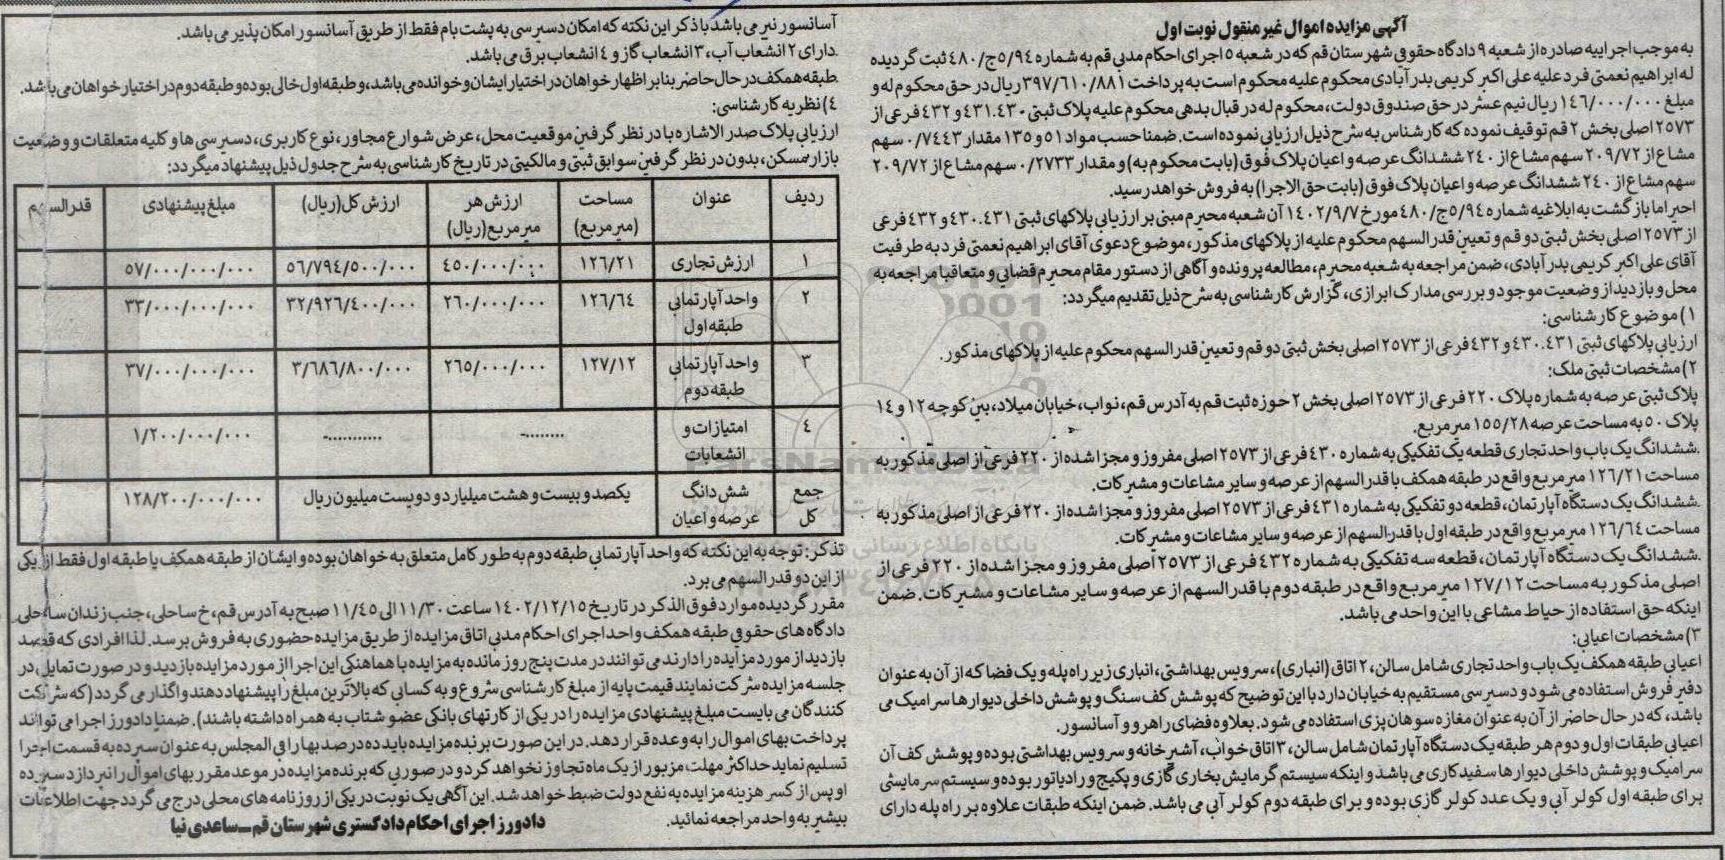 آگهی مزایده اموال غیر منقول نوبت اول
به موجب اجراییه صادره از شعبه ۹ دادگاه حقوقی شهرستان قم که در شعبه ۵ اجرای احکام مدنی قم به شماره ۵/۹۴ج/۴۸۰ ثبت گردیده
له ابراهیم نعمتی فرد علیه علی اکبر کریمی بدرآبادی محکوم علیه محکوم است به پرداخت ۳۹۷/۶۱۰/۸۸۱ ریال در حق محکوم له و
مبلغ ۱۴۶/۰۰۰/۰۰۰ ریال نیم عشر در حق صندوق دولت، محکوم له در قبال بدهی محکوم علیه پلاک ثبتی ۴۳۱.۴۳۰ و ۴۳۲ فرعی از
۲۵۷۳ اصلی بخش ۲ قم توقیف نموده که کارشناس به شرح ذیل ارزیابی نموده است. ضمنا حسب مواد ۵۱ و ۱۳۵ مقدار ۰/۷۴۴۳ سهم
مشاع از ۲۰۹/۷۲ سهم مشاع از ۲۴۰ ششدانگ عرصه و اعیان پلاک فوق (بابت محکوم به) و مقدار ۰/۲۷۳۳ سهم مشاع از ۲۰۹/۷۲
سهم مشاع از ۲۴۰ ششدانگ عرصه و اعیان پلاک فوق (بابت حق الاجرا) به فروش خواهد رسید.
احتراما بازگشت به ابلاغیه شماره ۵/۹۴ج/۴۸۰ مورخ ۱۴۰۲/۹/۷ آن شعبه محترم مبنی بر ارزیابی پلاکهای ثبتی ۴۳۰.۴۳۱ و ۴۳۲ فرعی
از ۲۵۷۳ اصلی بخش ثبتی دو قم و تعیین قدرالسهم محکوم علیه از پلاکهای مذکور، موضوع دعوی آقای ابراهیم نعمتی فرد به طرفیت
آقای علی اکبر کریمی بدرآبادی، ضمن مراجعه به شعبه محترم، مطالعه پرونده و آگاهی از دستور مقام محترم قضایی و متعاقبا مراجعه به
محل و بازدید از وضعیت موجود و بررسی مدارک ابرازی، گزارش کارشناسی به شرح ذیل تقدیم میگردد:
۱) موضوع کارشناسی:
ارزیابی پلاکهای ثبتی ۴۳۰.۴۳۱ و ۴۳۲ فرعی از ۲۵۷۳ اصلی بخش ثبتی دو قم و تعیین قدرالسهم محکوم علیه از پلاکهای مذکور.
۲) مشخصات ثبتی ملک:
پلاک ثبتی عرصه به شماره پلاک ۲۲۰ فرعی از ۲۵۷۳ اصلی بخش ۲ حوزه ثبت قم به آدرس قم، نواب، خیابان میلاد، بین کوچه ۱۲ و ۱۴
پلاک ۵۰ به مساحت عرصه ۱۵۵/۲۸ متر مربع.
.ششدانگ یک باب واحد تجاری قطعه یک تفکیکی به شماره ۴۳۰ فرعی از ۲۵۷۳ اصلی مفروز و مجزا شده از ۲۲۰ فرعی از اصلی مذکور به
مساحت ۱۲۶/۲۱ متر مربع واقع در طبقه همکف با قدرالسهم از عرصه و سایر مشاعات و مشترکات.
.ششدانگ یک دستگاه آپارتمان، قطعه دو تفکیکی به شماره ۴۳۱ فرعی از ۲۵۷۳ اصلی مفروز و مجزا شده از ۲۲۰ فرعی از اصلی مذکور به
مساحت ۱۲۶/۶۴ متر مربع واقع در طبقه اول با قدرالسهم از عرصه و سایر مشاعات و مشترکات.
.ششدانگ یک دستگاه آپارتمان، قطعه سه تفکیکی به شماره ۴۳۲ فرعی از ۲۵۷۳ اصلی مفروز و مجزا شده از ۲۲۰ فرعی از
اصلی مذکور به مساحت ۱۲۷/۱۲ متر مربع واقع در طبقه دوم با قدرالسهم از عرصه و سایر مشاعات و مشترکات. ضمن
اینکه حق استفاده از حیاط مشاعی با این واحد می باشد.
۳) مشخصات اعیانی:
اعیانی طبقه همکف یک باب واحد تجاری شامل سالن، ۲ اتاق (انباری)، سرویس بهداشتی، انباری زیر راه پله و یک فضا که از آن به عنوان
دفتر فروش استفاده می شود و دسترسی مستقیم به خیابان دارد با این توضیح که پوشش کف سنگ و پوشش داخلی دیوارها سرامیک می
باشد، که در حال حاضر از آن به عنوان مغازه سوهان پزی استفاده می شود. بعلاوه فضای راهرو و آسانسور.
اعیانی طبقات اول و دوم هر طبقه یک دستگاه آپارتمان شامل سالن، ۳ اتاق خواب، آشپزخانه و سرویس بهداشتی بوده و پوشش کف آن
سرامیک و پوشش داخلی دیوارها سفیدکاری می باشد و اینکه سیستم گرمایش بخاری گازی و پکیج و رادیاتور بوده و سیستم سرمایشی
برای طبقه اول کولر آبی و یک عدد کولر گازی بوده و برای طبقه دوم کولر آبی می باشد. ضمن اینکه طبقات علاوه بر راه پله دارای
آسانسور نیز می باشد با ذکر این نکته که امکان دسترسی به پشت بام فقط از طریق آسانسور امکان پذیر می باشد.
.دارای ۲ انشعاب آب، ۳ انشعاب گاز و ۴ انشعاب برق می باشد.
.طبقه همکف در حال حاضر بنابر اظهار خواهان در اختیار ایشان و خوانده می باشد، و طبقه اول خالی بوده و طبقه دوم در اختیار خواهان می باشد.
۴) نظریه کارشناسی:
ارزیابی پلاک صدرالاشاره با در نظر گرفتن موقعیت محل، عرض شوارع مجاور، نوع کاربری، دسترسی ها و کلیه متعلقات و وضعیت
بازار مسکن، بدون در نظر گرفتن سوابق ثبتی و مالکیتی در تاریخ کارشناسی به شرح جدول ذیل پیشنهاد میگردد:
ردیف عنوان مساحت (متر مربع) ارزش هر متر مربع (ریال) ارزش کل (ریال) مبلغ پیشنهادی قدرالسهم
۱ ارزش تجاری ۱۲۶/۲۱ ۴۵۰/۰۰۰/۰۰۰ ۵۶/۷۹۴/۵۰۰/۰۰۰ ۵۷/۰۰۰/۰۰۰/۰۰۰
۲ واحد آپارتمانی طبقه اول ۱۲۶/۶۴ ۲۶۰/۰۰۰/۰۰۰ ۳۲/۹۲۶/۴۰۰/۰۰۰ ۳۳/۰۰۰/۰۰۰/۰۰۰
۳ واحد آپارتمانی طبقه دوم ۱۲۷/۱۲ ۲۶۵/۰۰۰/۰۰۰ ۳/۶۸۶/۸۰۰/۰۰۰ ۳۷/۰۰۰/۰۰۰/۰۰۰
۴ امتیازات و انشعابات ........- ...........- ۱/۲۰۰/۰۰۰/۰۰۰
جمع کل شش دانگ عرصه و اعیان یکصد و بیست و هشت میلیارد و دویست میلیون ریال ۱۲۸/۲۰۰/۰۰۰/۰۰۰
تذکر: توجه به این نکته که واحد آپارتمانی طبقه دوم به طور کامل متعلق به خواهان بوده و ایشان از طبقه همکف یا طبقه اول فقط از یکی
از این دو قدرالسهم می برد.
مقرر گردیده موارد فوق الذکر در تاریخ ۱۴۰۲/۱۲/۱۵ ساعت ۱۱/۳۰ الی ۱۱/۴۵ صبح به آدرس قم، خ ساحلی، جنب زندان ساحلی
دادگاه های حقوقی طبقه همکف واحد اجرای احکام مدنی اتاق مزایده از طریق مزایده حضوری به فروش برسد. لذا افرادی که قصد
بازدید از مورد مزایده را دارند می توانند در مدت پنج روز مانده به مزایده با هماهنگی این اجرا از مورد مزایده بازدید و در صورت تمایل در
جلسه مزایده شرکت نمایند قیمت پایه از مبلغ کارشناسی شروع و به کسانی که بالاترین مبلغ را پیشنهاد دهند واگذار می گردد (که شرکت
کنندگان می بایست مبلغ پیشنهادی مزایده را در یکی از کارتهای بانکی عضو شتاب به همراه داشته باشند). ضمنا دادورز اجرا می تواند
پرداخت بهای اموال را به وعده قرار دهد. در این صورت برنده مزایده باید ده درصد بها را فی المجلس به عنوان سپرده به قسمت اجرا
تسلیم نماید حداکثر مهلت مزبور از یک ماه تجاوز نخواهد کرد و در صورتی که برنده مزایده در موعد مقرر بهای اموال را نپردازد سپرده
او پس از کسر هزینه مزایده به نفع دولت ضبط خواهد شد. این آگهی یک نوبت در یکی از روزنامه های محلی درج می گردد جهت اطلاعات
بیشتر به واحد مراجعه نمائید.
دادورز اجرای احکام دادگستری شهرستان قم_ساعدی نیا